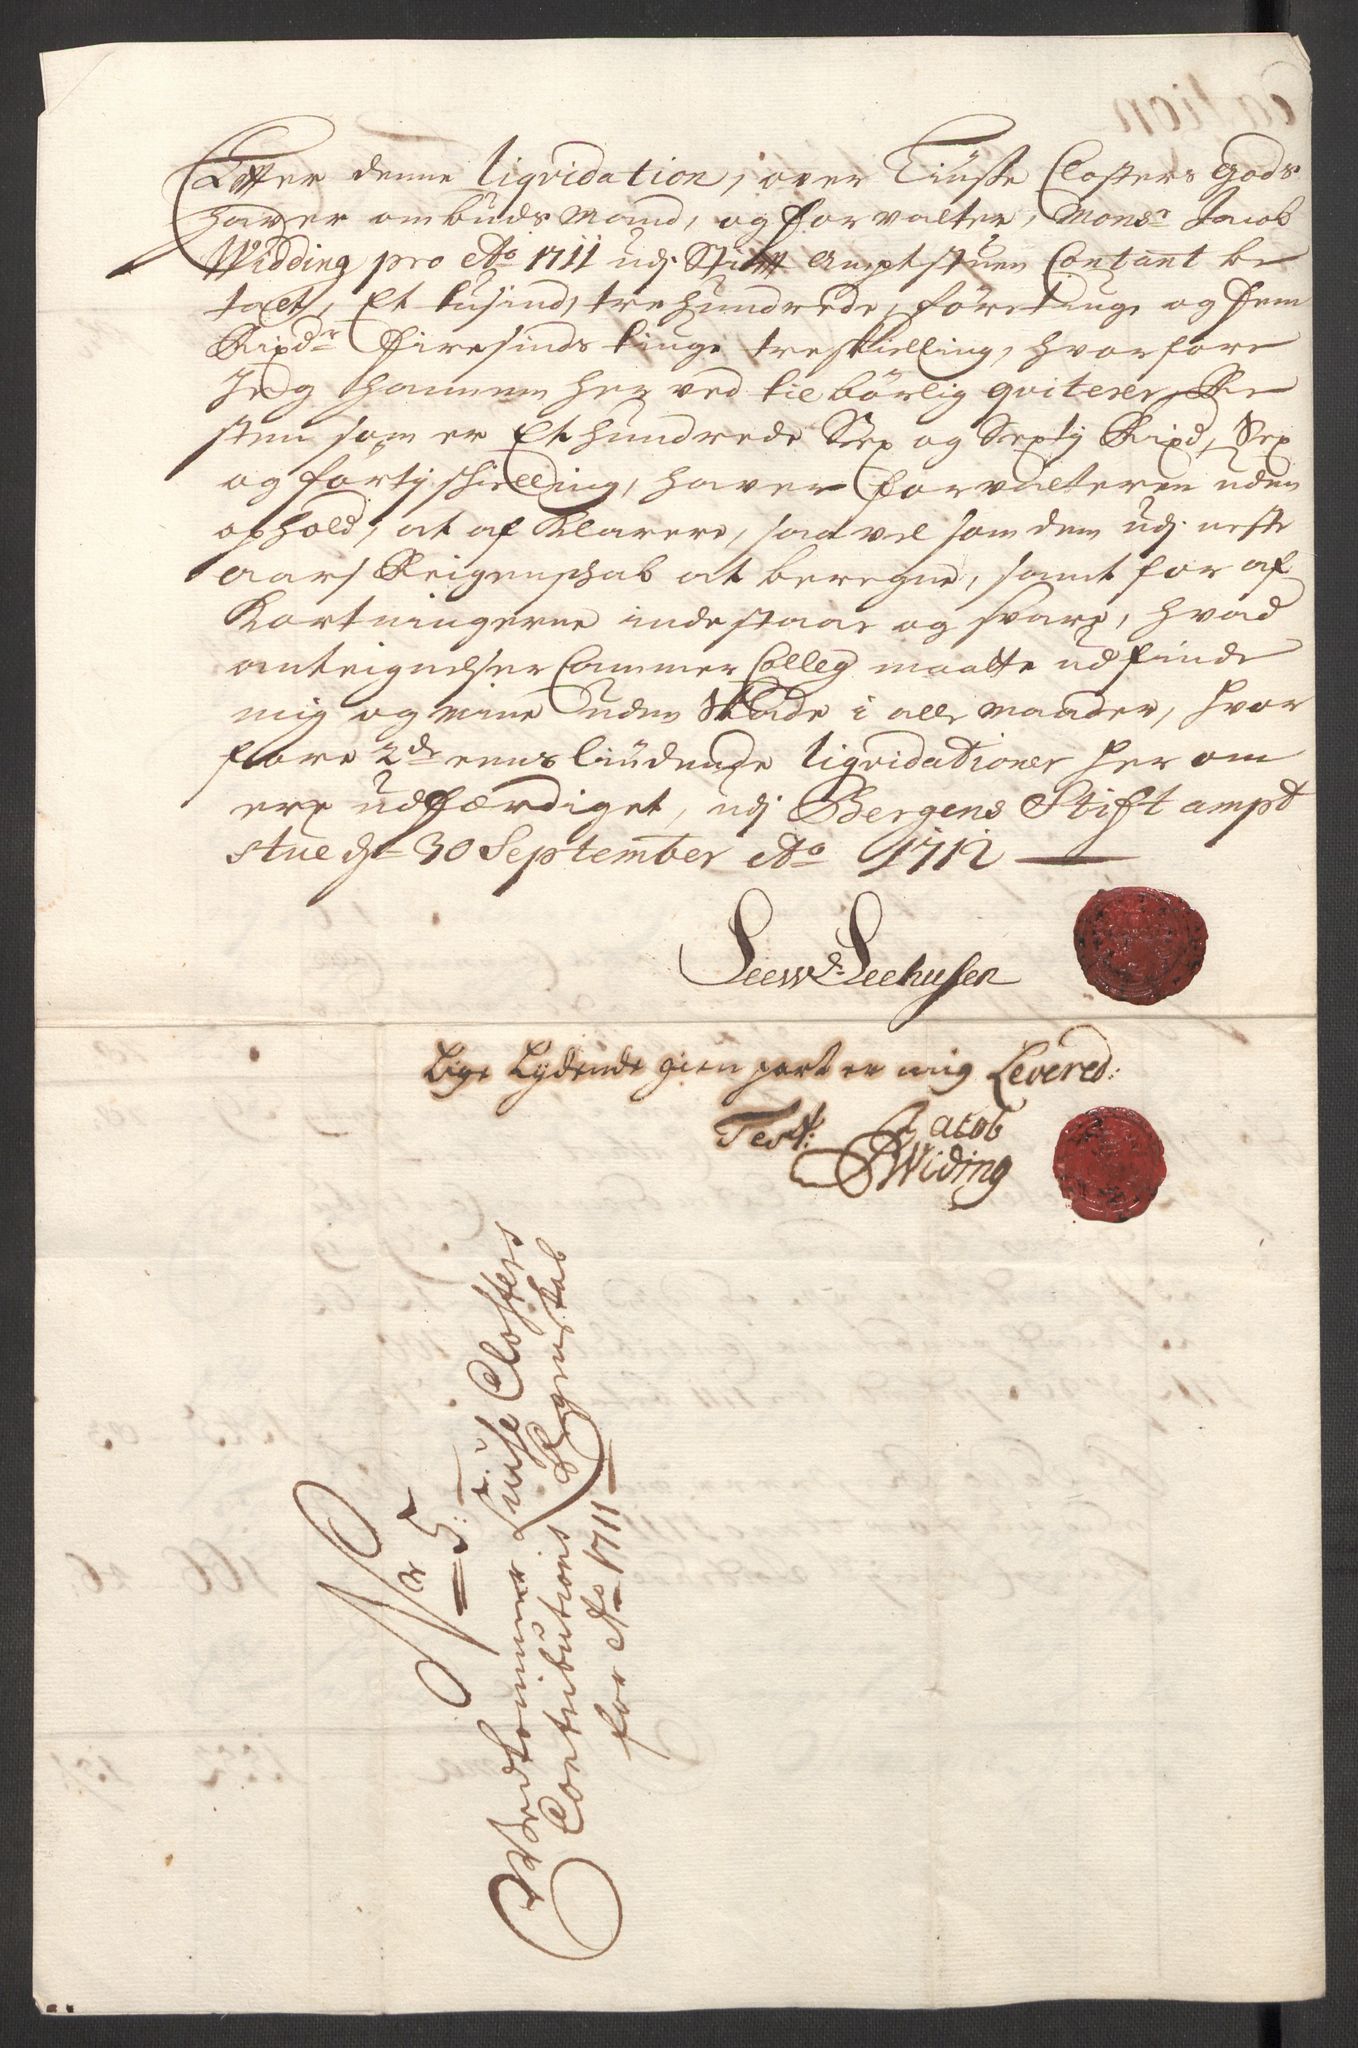 Effter denne liqvidation, over Liuße Closters Gods
haver ombuds Mand, og forvalter, Monsr Jacob
Widding pro Ao 1711 udj Stifft Ampt stuen Contant be
talt, Et tusind, trehundrede, företiuge og fem
Rixdr firesinds tiuge treskielling, hvorfore
Jeg hannem her ved tilbörlig qviterer, Re
sten som er Et hundrede Sex og Sexty Rixd, Sex
og fortij skielling, haver forvalteren uden
ophold, at af klarere, saa vel som dem udj neste
aars Reigenskab at beregne, samt for af
kortningerne indestaae og svare, hvad
anteignelser Cammer Colleg maatte udfinde
mig og mine uden Skade i alle maader, hvor
fore 2de eens liudende liqvidationer her om
ere udfærdiget, udj Bergens Stift ampt
stue d. 30 September Ao 1712
Seewd. Seehusen
Lige Lydende gien part er mig Levered:
Test: Jacob
Widing
Nor 5:
Vedkommer Liuße Closters
Contributions Regnskab
for Ao 1711